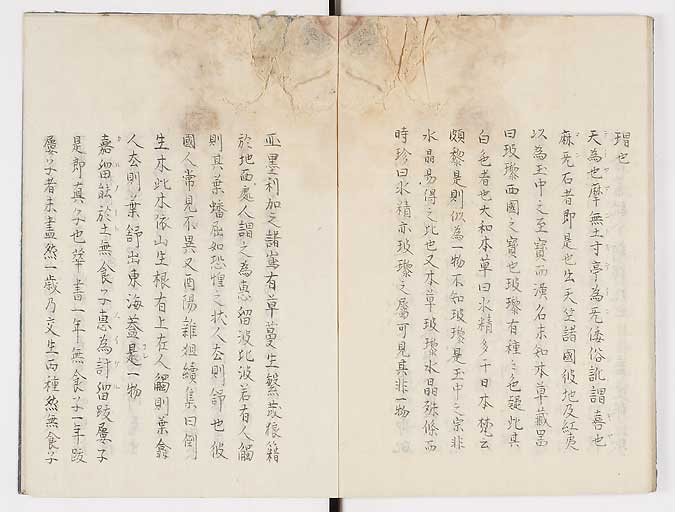 瑁也
天為也摩無土寸亭為旡倭俗訛謂喜也
麻旡石者即是也出天竺諸國彼地及紅夷
以為玉中之至寶而漢名未知本草藏器
曰玻瓈西國之寶也玻瓈有種々色疑此其
白色者也大和本草曰水精多于日本梵云
頗黎是則似為一物不知玻瓈是玉中之宗非
水晶易得之比也又本草玻瓈水晶殊條而
時珍曰水精亦玻瓈之屬可見其非一物
亞墨利加之諸嶌有草蔓生繁茂狼籍
於地面處人謂之為惠留波比波若有人觸
則其葉蟠屈如恐惶之状人去則舒也彼
國人常見不異又酉陽雜俎續集曰倒
生木此木依山生根有上在人觸則葉翕
人去則葉舒出東海蓋是一物
嘉留能於土無食子惠為討留跂屢子
是即真子也華書一年無食子一年跂
屢子者未盡然一歳乃交生両種然無食子